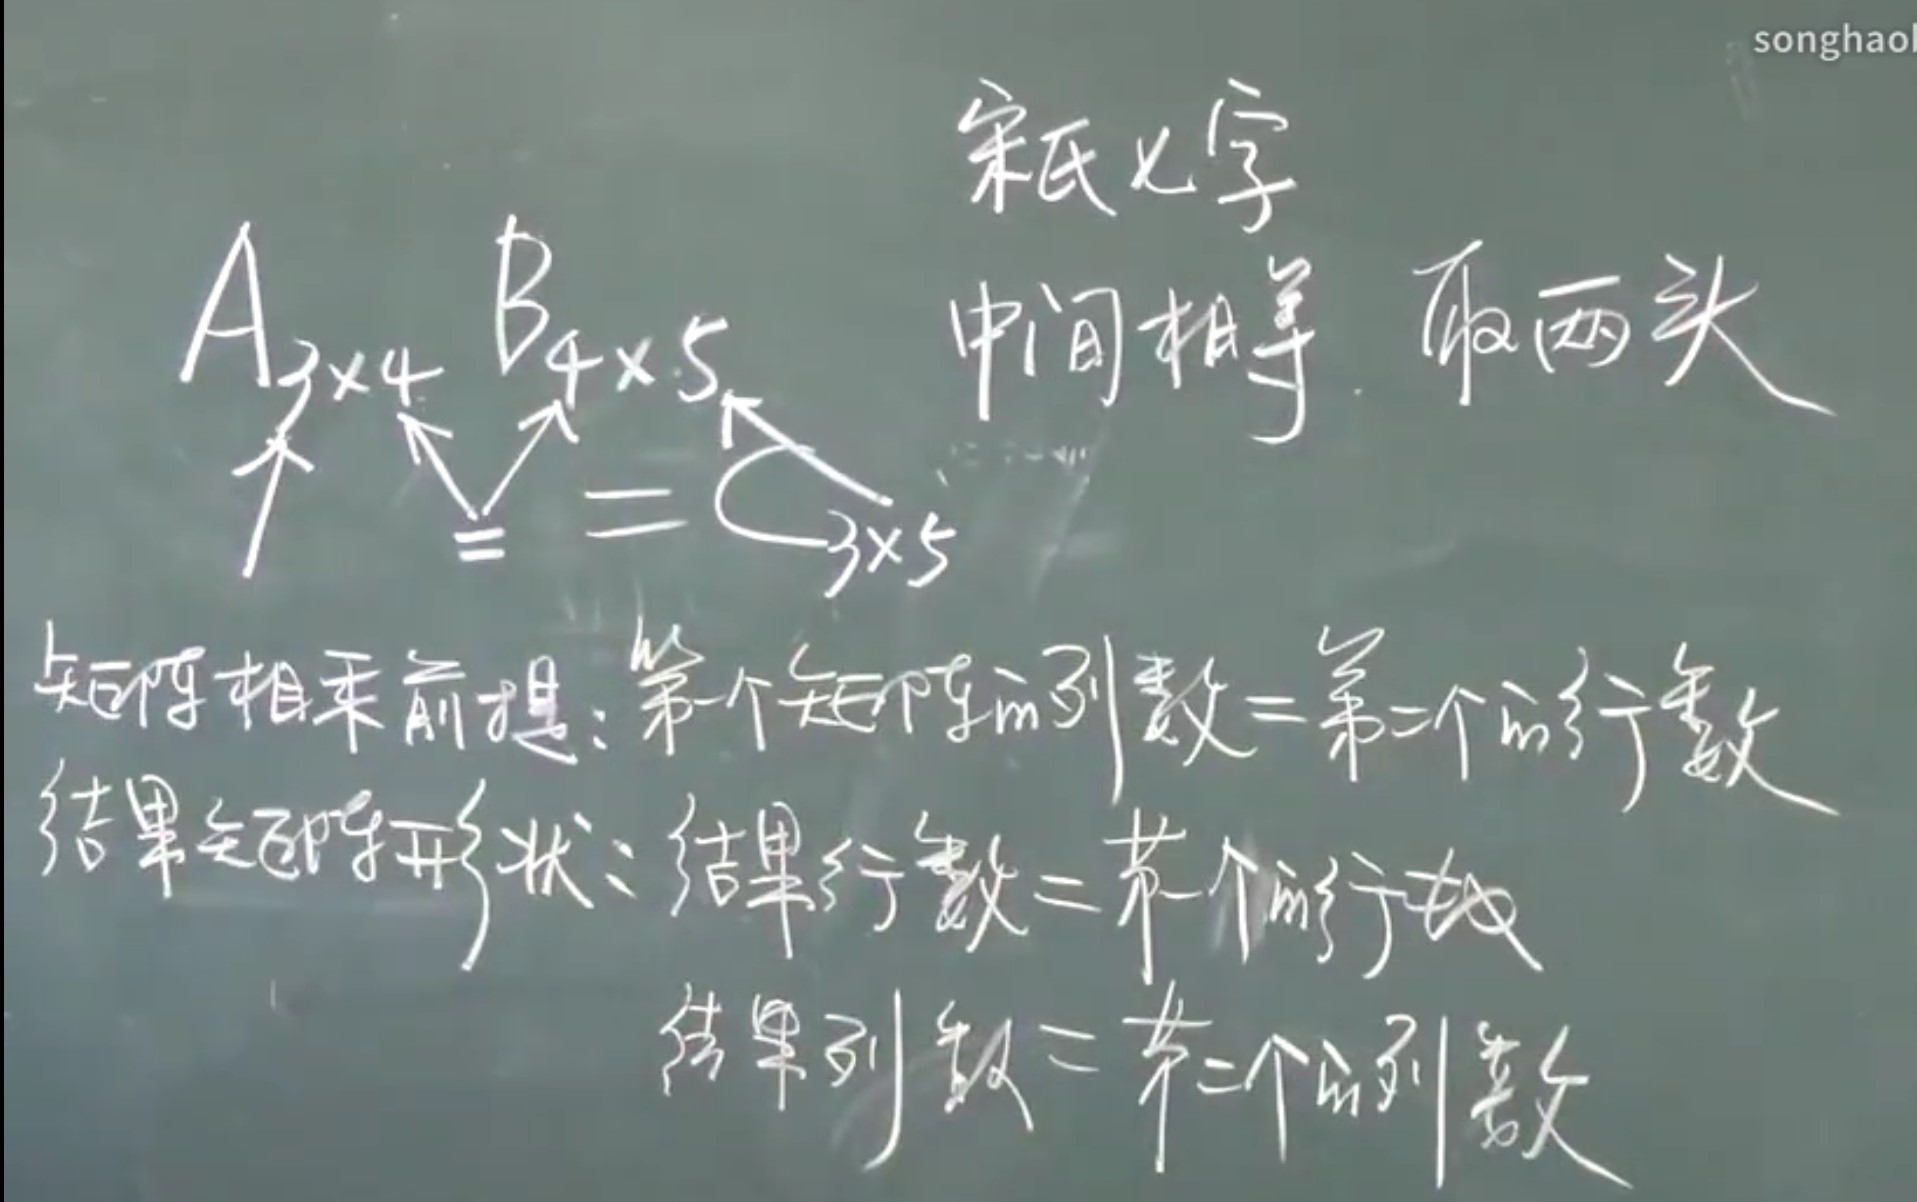 songhaol
宋氏乂字
中间相等 取两头
A₃ₓ₄ B₄ₓ₅
= = C₃ₓ₅
矩阵相乘前提：第一个矩阵的列数=第二个的行数
结果矩阵形状：结果行数=第一个的行数
结果列数=第二个的列数